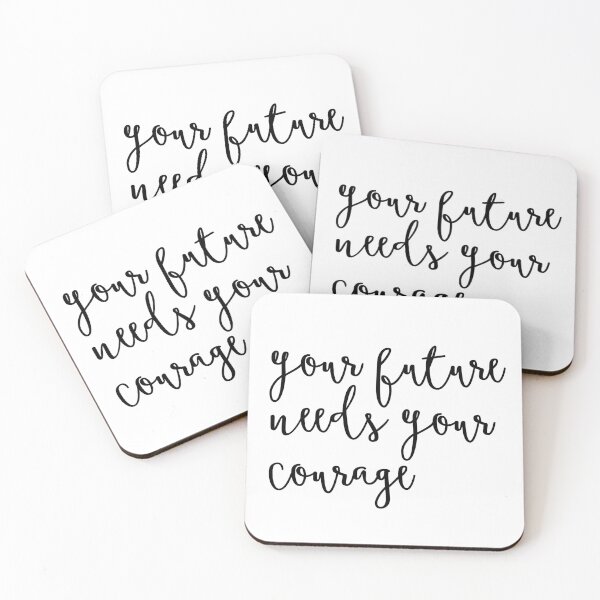 your future
need your
your future
needs your
courage
your future
needs your
courage
your future
needs your
courage